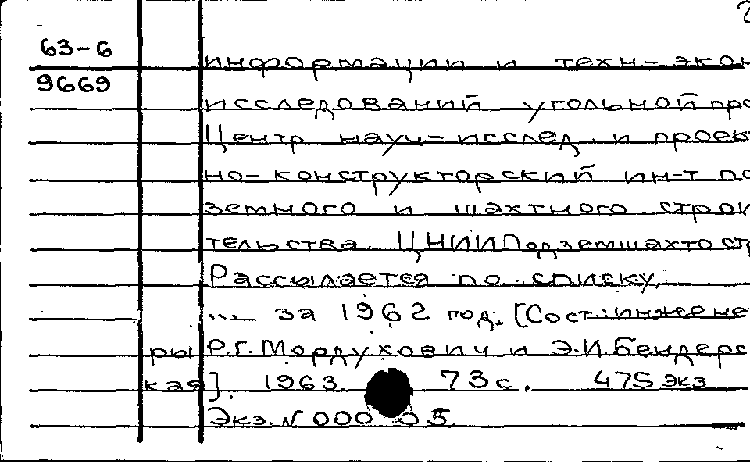 63-6
информации и техн-экон
9669
исследований угольной про
Центр науч-исслед. и проек
но-конструкторский ин-т по
земного и шахтного строи
тельства ЦНИИПодземшахтостр
Рассылается по списку.
... за 1962 год. [Сост: инжене
ры Р.Г.Мордухович и Э.И.Бендерс
кая]. 1963. 73с. 475 экз
Экз. N 000 05.